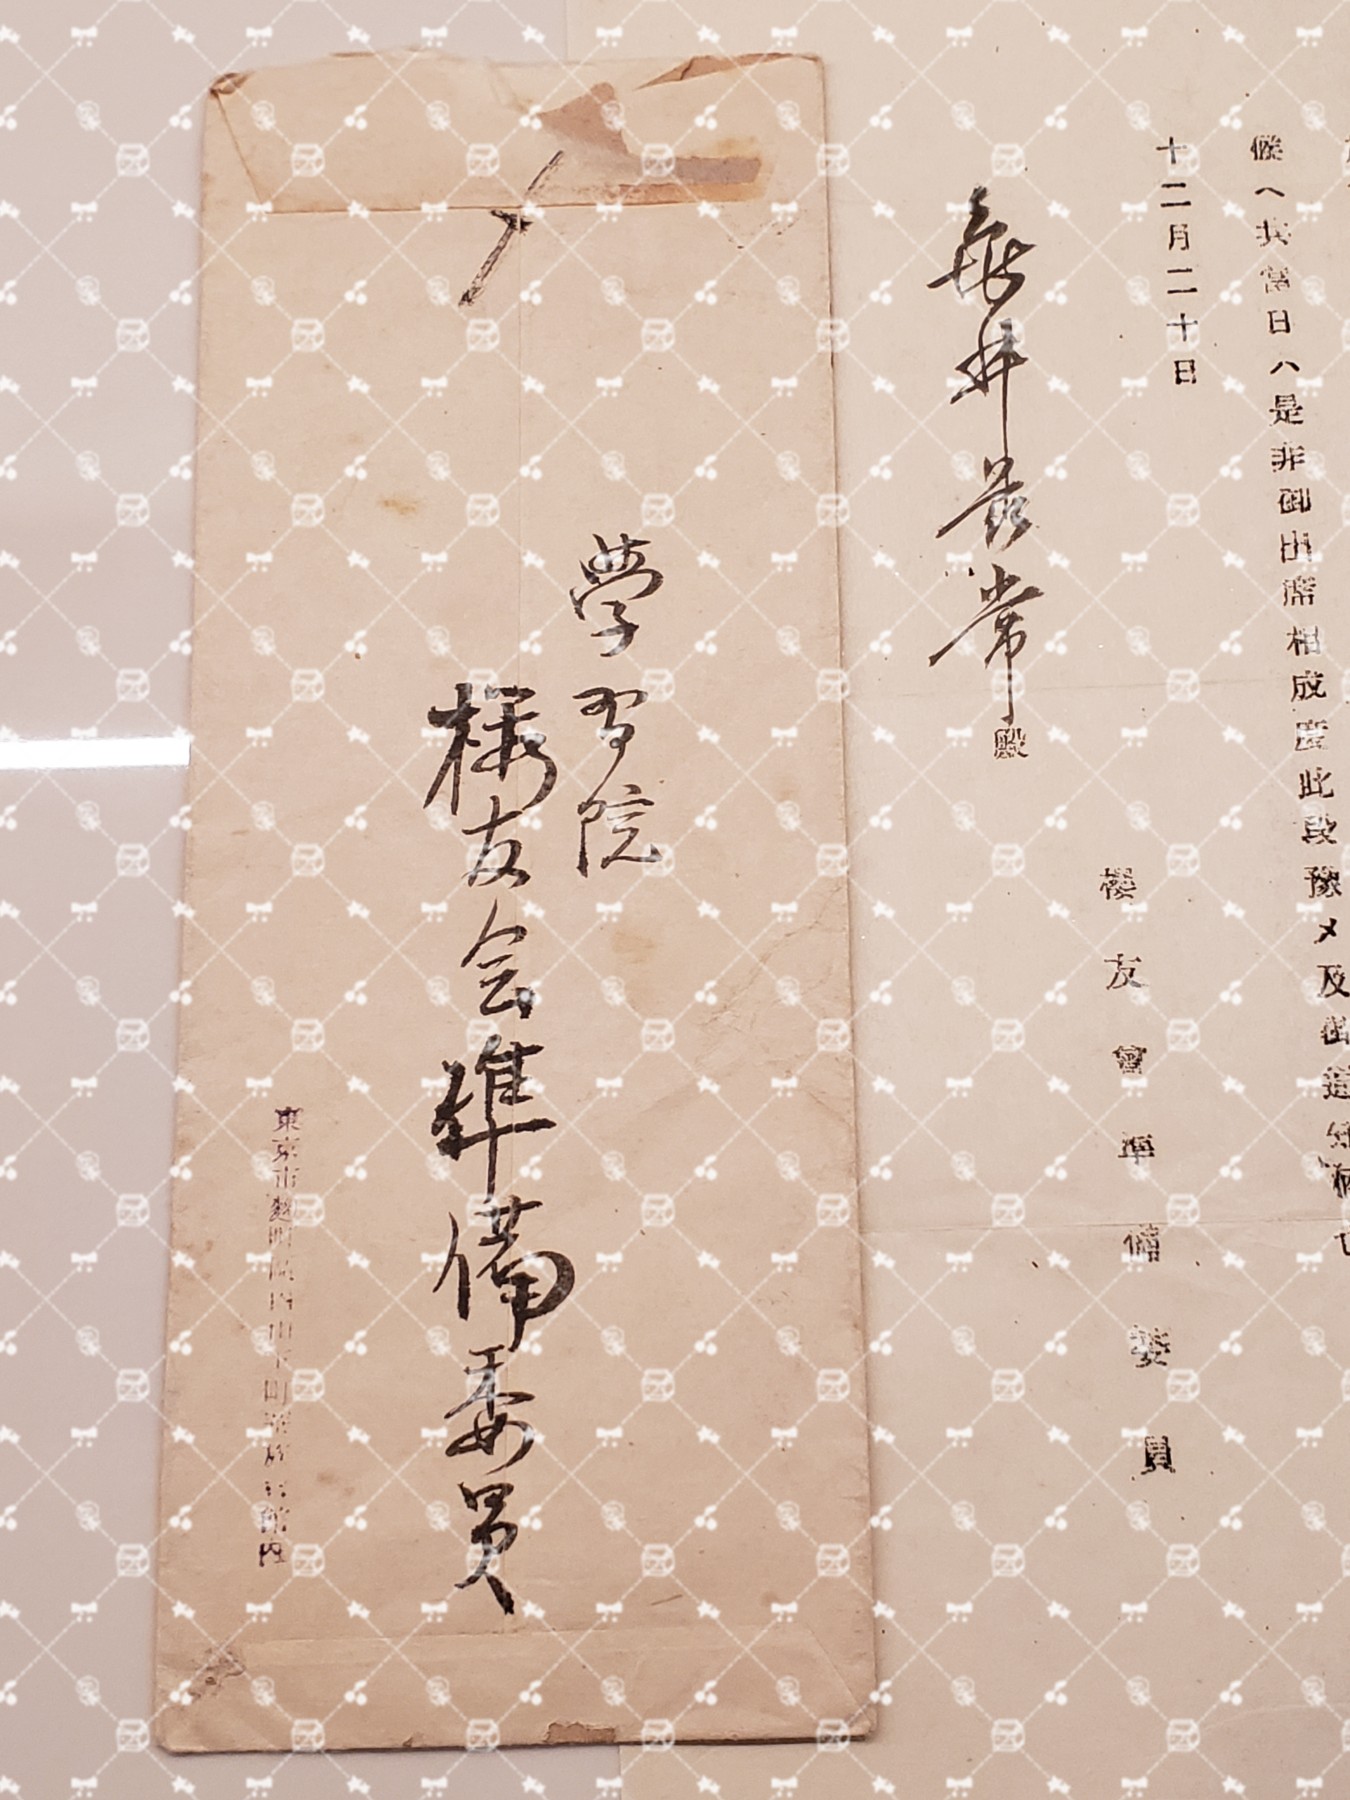 候ヘ共當日ハ是非御出席相成度此段豫メ及御通知
十二月二十日
亀井茲常殿
櫻友會準備委員
学習院
桜友会準備委員
東京市麴町區内山下町華族會館内